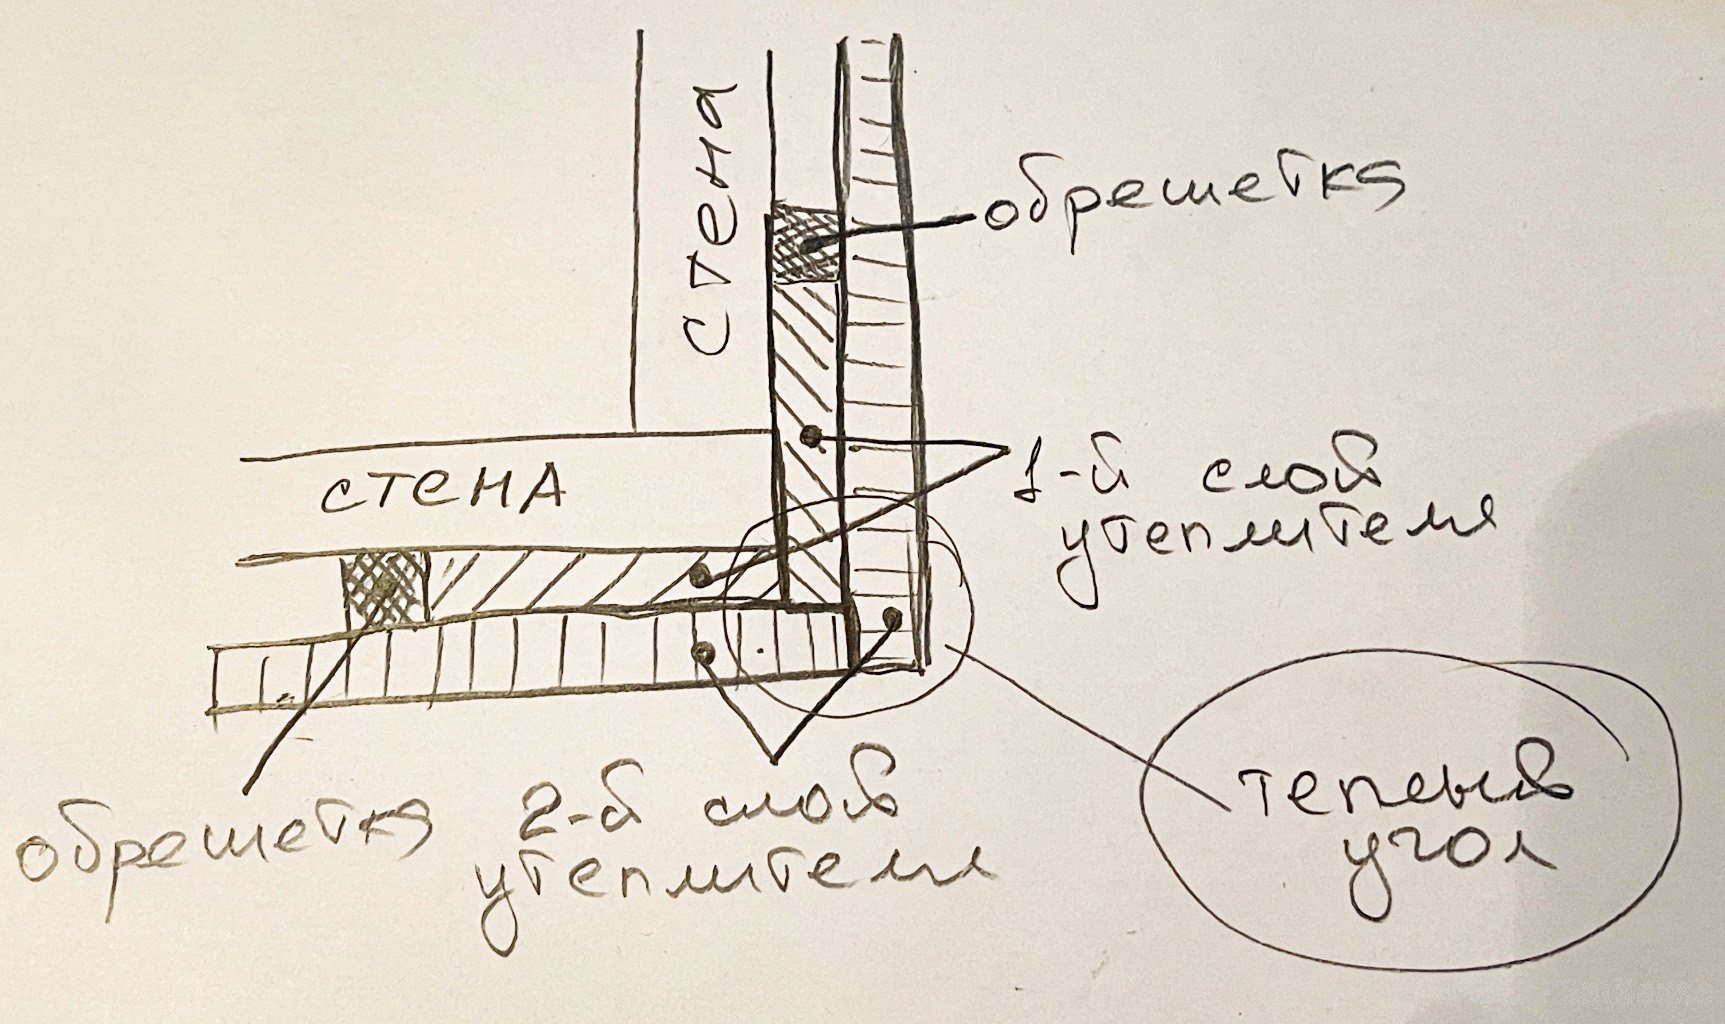 стена
обрешетка
1-й слой
утеплителя
стена
обрешетка
2-й слой
утеплителя
теплый
угол